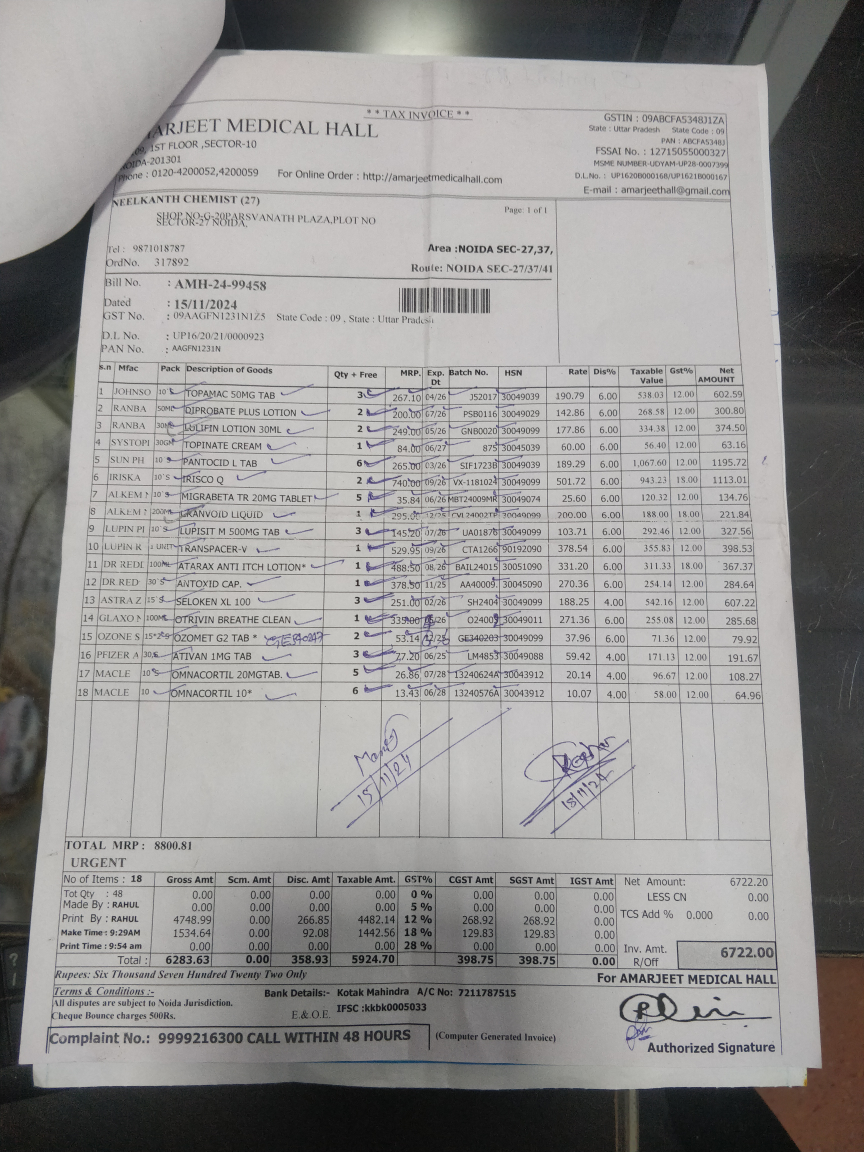 * * TAX INVOICE * *
ARJEET MEDICAL HALL
09, 1ST FLOOR ,SECTOR-10
NOIDA-201301
Phone : 0120-4200052,4200059 For Online Order : http://amarjeetmedicalhall.com
GSTIN : 09ABCFA5348J1ZA
State : Uttar Pradesh State Code : 09
PAN : ABCFA5348J
FSSAI No. : 12715055000327
MSME NUMBER-UDYAM-UP28-0007399
D.L.No. : UP1620B000168/UP1621B000167
E-mail : amarjeethall@gmail.com
NEELKANTH CHEMIST (27)
SHOP NO-G-20PARSVANATH PLAZA,PLOT NO
SECTOR-27 NOIDA,
Page: 1 of 1
Tel : 9871018787
OrdNo. 317892
Area :NOIDA SEC-27,37,
Route: NOIDA SEC-27/37/41
Bill No. : AMH-24-99458
Dated : 15/11/2024
GST No. : 09AAGFN1231N1Z5 State Code : 09 , State : Uttar Pradesh
D.L No. : UP16/20/21/0000923
PAN No. : AAGFN1231N
s.n Mfac Pack Description of Goods Qty + Free MRP. Exp. Dt Batch No. HSN Rate Dis% Taxable Value Gst% Net AMOUNT
1 JOHNSO 10'S TOPAMAC 50MG TAB 3 267.10 04/26 JS2017 30049039 190.79 6.00 538.03 12.00 602.59
2 RANBA 50ML DIPROBATE PLUS LOTION 2 200.00 07/26 PSB0116 30049029 142.86 6.00 268.58 12.00 300.80
3 RANBA 30ML LULIFIN LOTION 30ML 2 249.00 05/26 GNB0020 30049099 177.86 6.00 334.38 12.00 374.50
4 SYSTOPI 30GM TOPINATE CREAM 1 84.00 06/27 875 30045039 60.00 6.00 56.40 12.00 63.16
5 SUN PH 10'S PANTOCID L TAB 6 265.00 03/26 SIF1723B 30049039 189.29 6.00 1,067.60 12.00 1195.72
6 IRISKA 10'S IRISCO Q 2 740.00 09/26 VX-1181024 30049099 501.72 6.00 943.23 18.00 1113.01
7 ALKEM 10'S MIGRABETA TR 20MG TABLET 5 35.84 06/26 MBT24009MR 30049074 25.60 6.00 120.32 12.00 134.76
8 ALKEM 200ML GRANVOID LIQUID 1 295.00 12/25 30049099 200.00 6.00 188.00 18.00 221.84
9 LUPIN PI 10'S LUPISIT M 500MG TAB 3 145.20 07/26 UA01876 30049099 103.71 6.00 292.46 12.00 327.56
10 LUPIN R 1 UNIT TRANSPACER-V 1 529.95 09/26 CTA1266 90192090 378.54 6.00 355.83 12.00 398.53
11 DR REDD 100ML ATARAX ANTI ITCH LOTION* 1 488.50 08/26 BAIL24015 30051090 331.20 6.00 311.33 18.00 367.37
12 DR RED 30'S ANTOXID CAP. 1 378.50 11/25 AA40009 30045090 270.36 6.00 254.14 12.00 284.64
13 ASTRA Z 15'S SELOKEN XL 100 3 251.00 02/26 SH2404 30049099 188.25 4.00 542.16 12.00 607.22
14 GLAXO N 100ML OTRIVIN BREATHE CLEAN 1 339.00 /26 O24009 30049011 271.36 6.00 255.08 12.00 285.68
15 OZONE S 15*2'S OZOMET G2 TAB * GE340247 2 53.14 /25 GE340203 30049099 37.96 6.00 71.36 12.00 79.92
16 PFIZER A 30'S ATIVAN 1MG TAB 3 77.20 06/25 LM4853 30049088 59.42 4.00 171.13 12.00 191.67
17 MACLE 10'S OMNACORTIL 20MGTAB. 5 26.86 07/28 13240624A 30043912 20.14 4.00 96.67 12.00 108.27
18 MACLE 10 OMNACORTIL 10* 6 13.43 06/28 13240576A 30043912 10.07 4.00 58.00 12.00 64.96
15/11/24
18/11/24
TOTAL MRP : 8800.81
URGENT
No of Items : 18 Gross Amt Scm. Amt Disc. Amt Taxable Amt. GST% CGST Amt SGST Amt IGST Amt
Tot Qty : 48 0.00 0.00 0.00 0.00 0 % 0.00 0.00 0.00
Made By : RAHUL 0.00 0.00 0.00 0.00 5 % 0.00 0.00 0.00
Print By : RAHUL 4748.99 0.00 266.85 4482.14 12 % 268.92 268.92 0.00
Make Time : 9:29AM 1534.64 0.00 92.08 1442.56 18 % 129.83 129.83 0.00
Print Time : 9:54 am 0.00 0.00 0.00 0.00 28 % 0.00 0.00 0.00
Total : 6283.63 0.00 358.93 5924.70 398.75 398.75 0.00
Net Amount: 6722.20
LESS CN 0.00
TCS Add % 0.000 0.00
Inv. Amt. 6722.00
R/Off
Rupees: Six Thousand Seven Hundred Twenty Two Only
For AMARJEET MEDICAL HALL
Terms & Conditions :-
All disputes are subject to Noida Jurisdiction.
Cheque Bounce charges 500Rs.
Bank Details:- Kotak Mahindra A/C No: 7211787515
IFSC :kkbk0005033
E.& O.E.
Complaint No.: 9999216300 CALL WITHIN 48 HOURS
(Computer Generated Invoice)
Authorized Signature